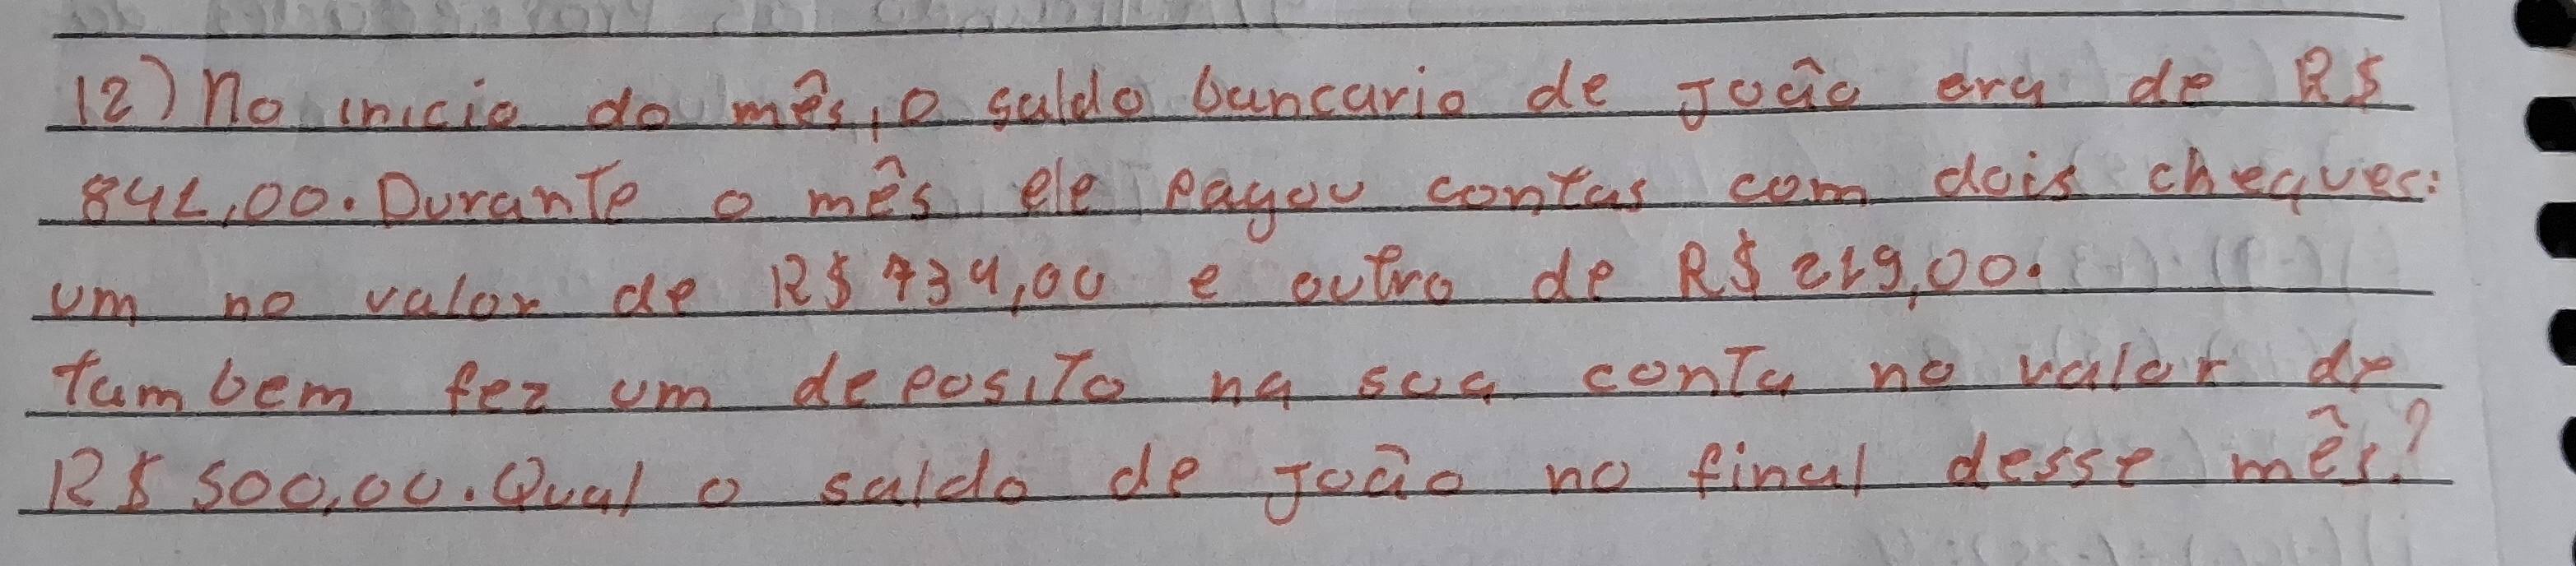 12) No inicio do mês, o saldo bancario de João era de R$
841,00. Durante o mês ele pagou contas com dois cheques:
um no valor de R$ 734,00 e outro de R$ 219,00.
tambem fez um deposito na sua conta no valor de
R$ 500,00. Qual o saldo de João no final desse mês?